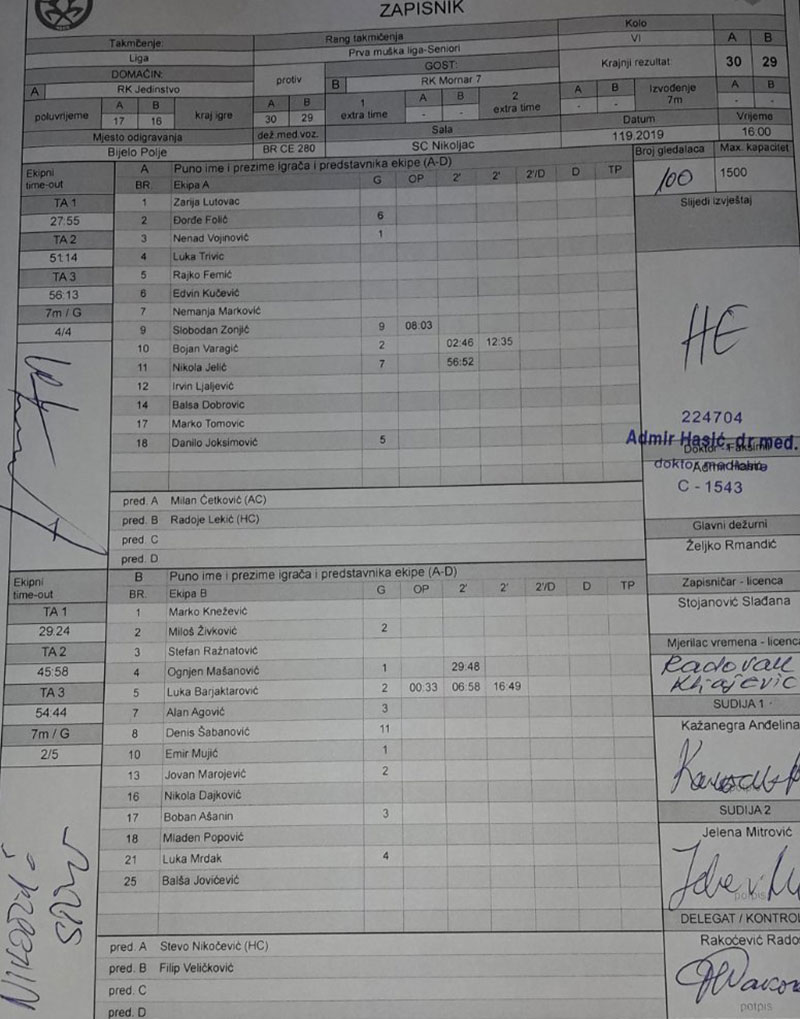 ZAPISNIK
Takmčenje: Rang takmičenja Kolo
Liga Prva muška liga-Seniori VI A B
DOMAĆIN: protiv GOST: Krajnji rezultat 30 29
A RK Jedinstvo B RK Mornar 7
poluvrijeme A B kraj igre A B 1 extra time A B 2 extra time A B Izvođenje 7m A B
17 16 30 29 - - - - - -
Mjesto odigravanja dež.med.voz. Sala Datum Vrijeme
Bijelo Polje BR CE 280 SC Nikoljac 119.2019 16.00
Ekipni time-out A Puno ime i prezime igrača i predstavnika ekipe (A-D) Broj gledalaca Max. kapacitet
BR. Ekipa A G OP 2' 2' 2'/D D TP 100 1500
TA 1 1 Zarija Lutovac Slijedi izvještaj
27:55 2 Đorđe Folić 6
TA 2 3 Nenad Vojinović 1
51:14 4 Luka Trivić
TA 3 5 Rajko Femić
56:13 6 Edvin Kučević
7m / G 7 Nemanja Marković
4/4 9 Slobodan Zonjić 9 08:03
10 Bojan Varagić 2 02:46 12:35
11 Nikola Jelić 7 56:52
12 Irvin Ljaljević
14 Balsa Dobrovic
17 Marko Tomovic
18 Danilo Joksimović 5
НЕ
224704
Admir Hasić, dr med.
doktor medicine
C - 1543
pred. A Milan Ćetković (AC)
pred. B Radoje Lekić (HC)
pred. C
pred. D
Glavni dežurni
Željko Rmandić
Ekipni time-out B Puno ime i prezime igrača i predstavnika ekipe (A-D)
BR. Ekipa B G OP 2' 2' 2'/D D TP
Zapisničar - licenca
Stojanović Slađana
TA 1 1 Marko Knežević
29:24 2 Miloš Živković 2
TA 2 3 Stefan Ražnatović
45:58 4 Ognjen Mašanović 1 29:48
TA 3 5 Luka Barjaktarović 2 00:33 06:58 16:49
54:44 7 Alan Agović 3
7m / G 8 Denis Šabanović 11
2/5 10 Emir Mujić 1
13 Jovan Marojević 2
16 Nikola Dajković
17 Boban Ašanin 3
18 Mladen Popović
21 Luka Mrdak 4
25 Balša Jovićević
Mjerilac vremena - licenca
Radovan
SUDIJA 1
Kažanegra Anđelina
SUDIJA 2
Jelena Mitrović
potpis
DELEGAT / KONTROL
Rakočević Rado
potpis
pred. A Stevo Nikočević (HC)
pred. B Filip Veličković
pred. C
pred. D